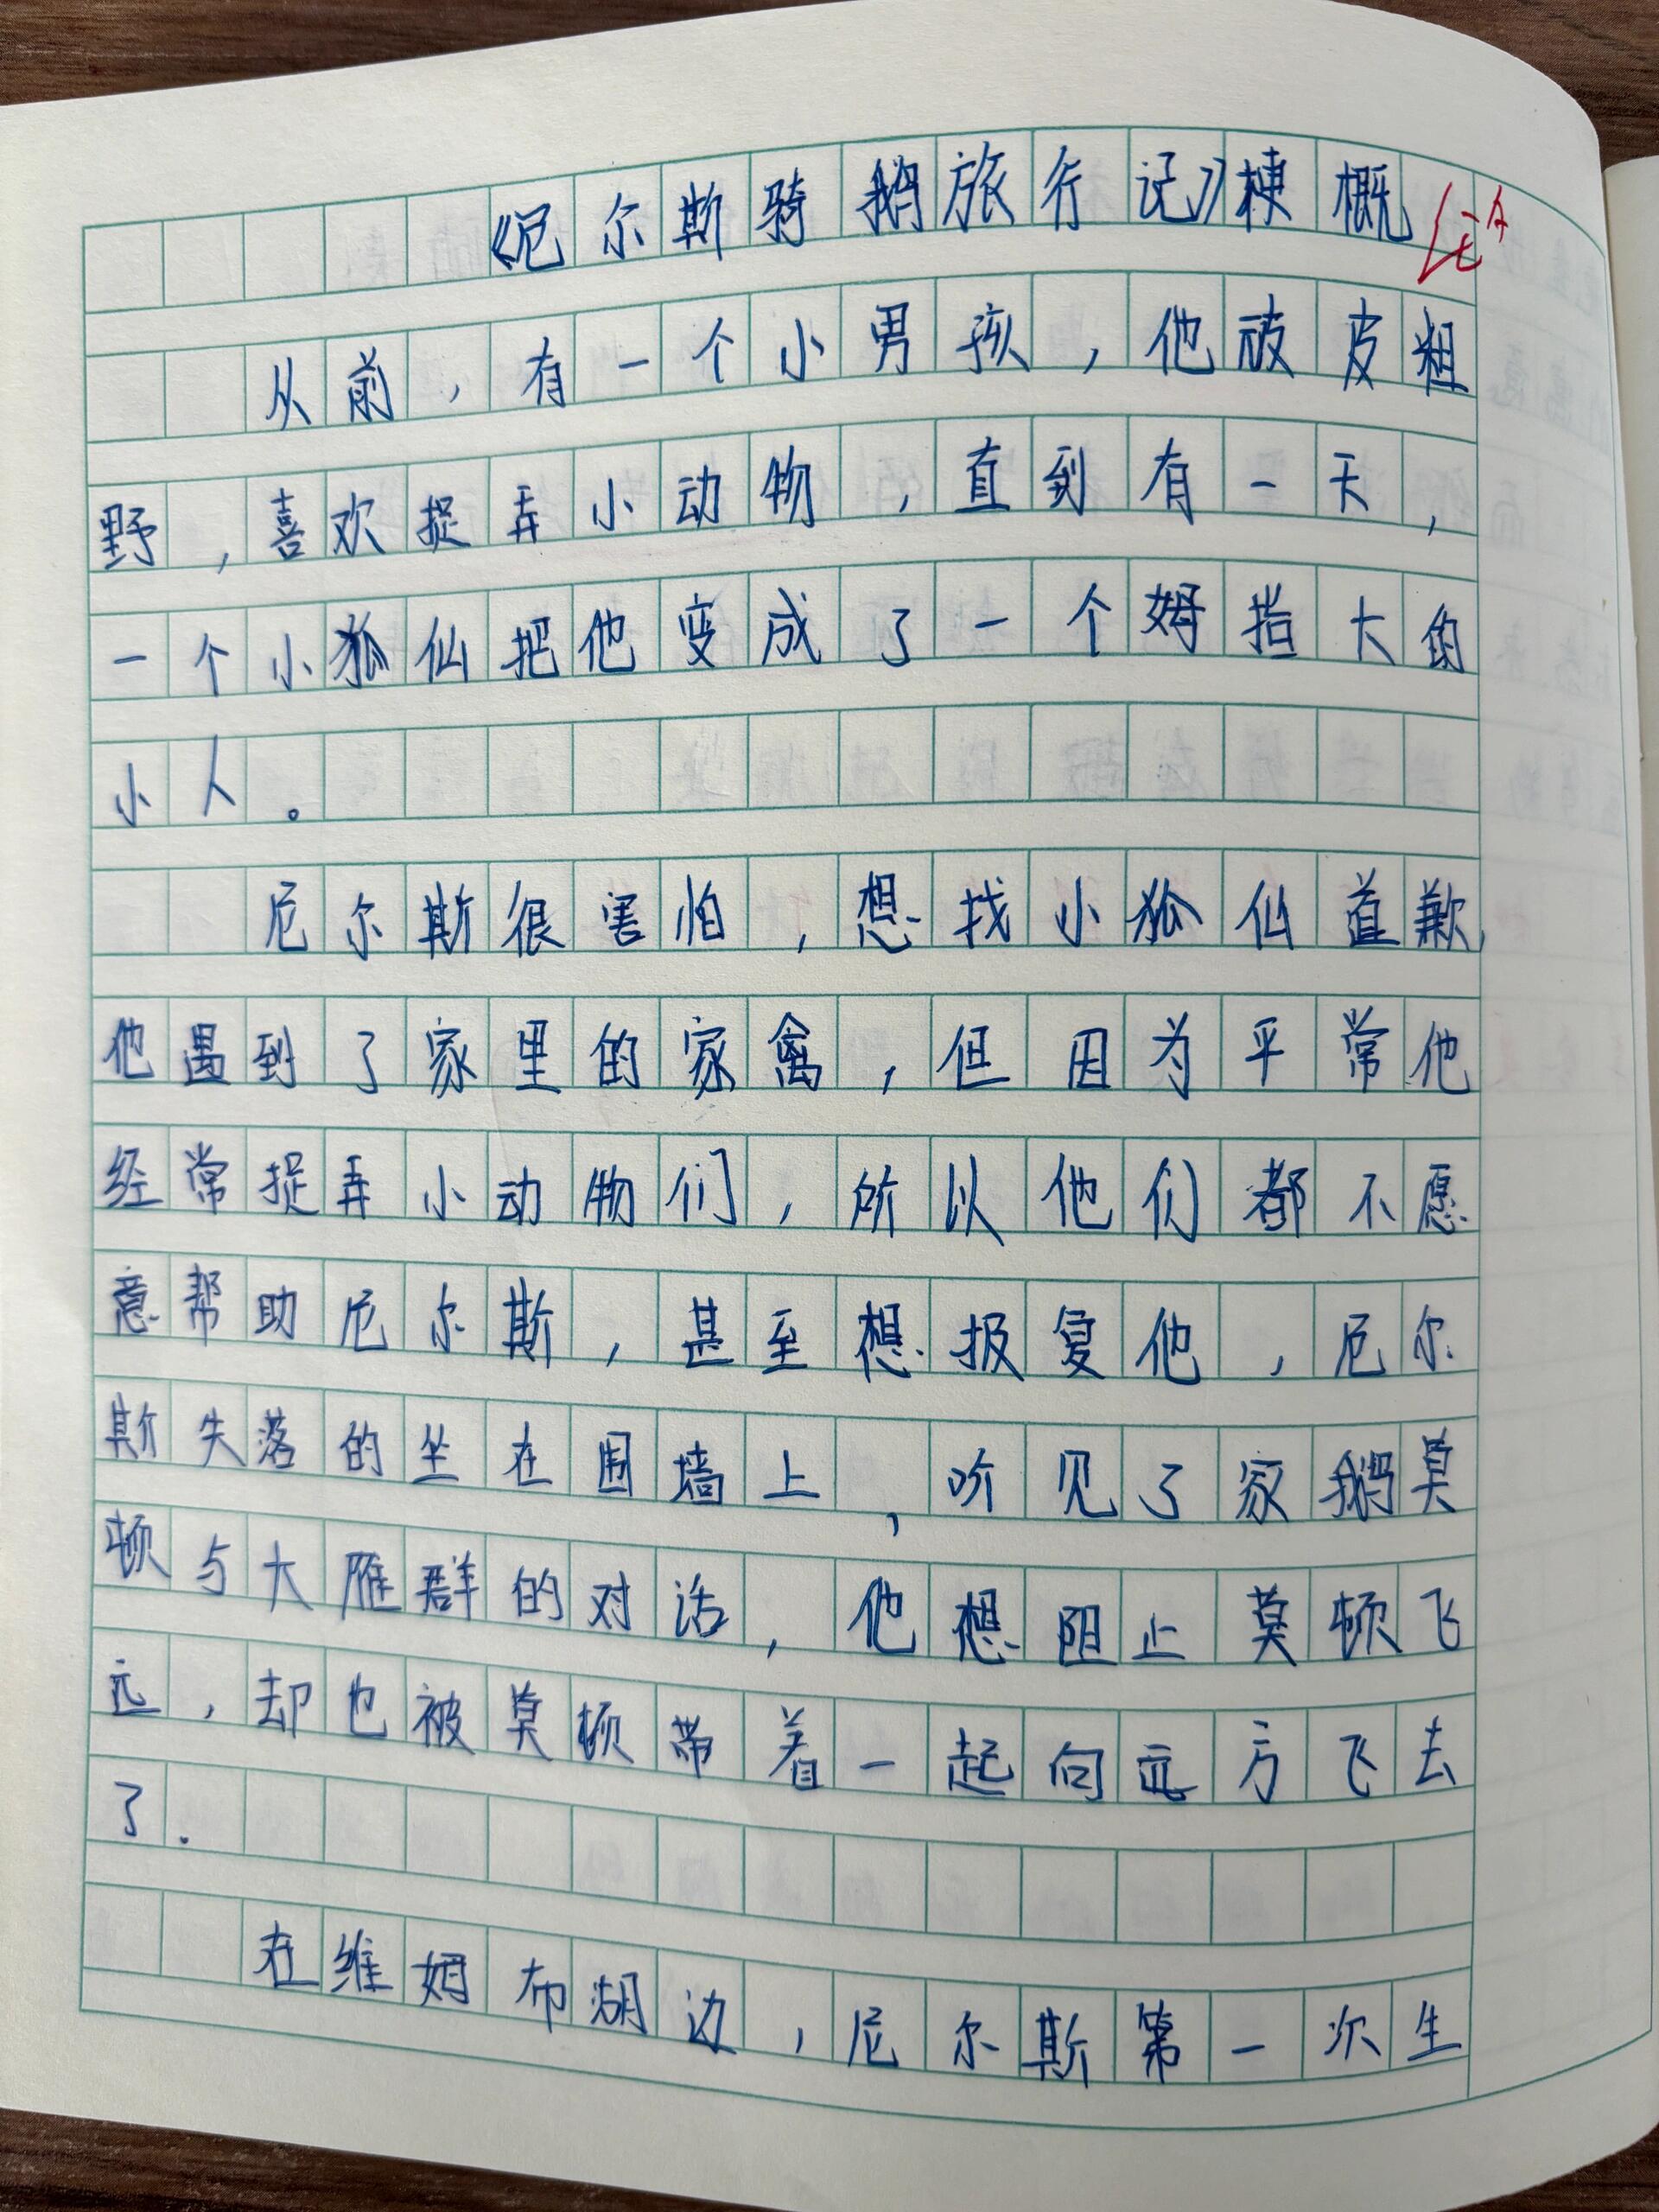 《尼尔斯骑鹅旅行记》梗概
从前，有一个小男孩，他顽皮粗
野，喜欢捉弄小动物，直到有一天，
一个小狐仙把他变成了一个姆指大的
小人。
尼尔斯很害怕，想找小狐仙道歉，
他遇到了家里的家禽，但因为平常他
经常捉弄小动物们，所以他们都不愿
意帮助尼尔斯，甚至想报复他，尼尔
斯失落的坐在围墙上，听见了家鹅莫
顿与大雁群的对话，他想阻止莫顿飞
远，却也被莫顿带着一起向远方飞去
了.
在维姆布湖边，尼尔斯第一次生